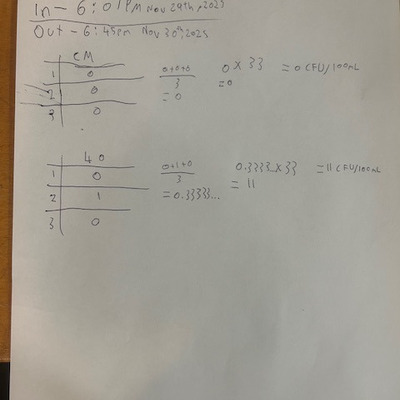 In - 6:01PM Nov 29th, 2025
Out - 6:45pm Nov 30th, 2025
CM
1 0
2 0
3 0
0+0+0
3
= 0
0 x 33 = 0 CFU/100mL
= 0
40
1 0
2 1
3 0
0+1+0
3
= 0.33333...
0.3333... x 33 = 11 CFU/100mL
= 11